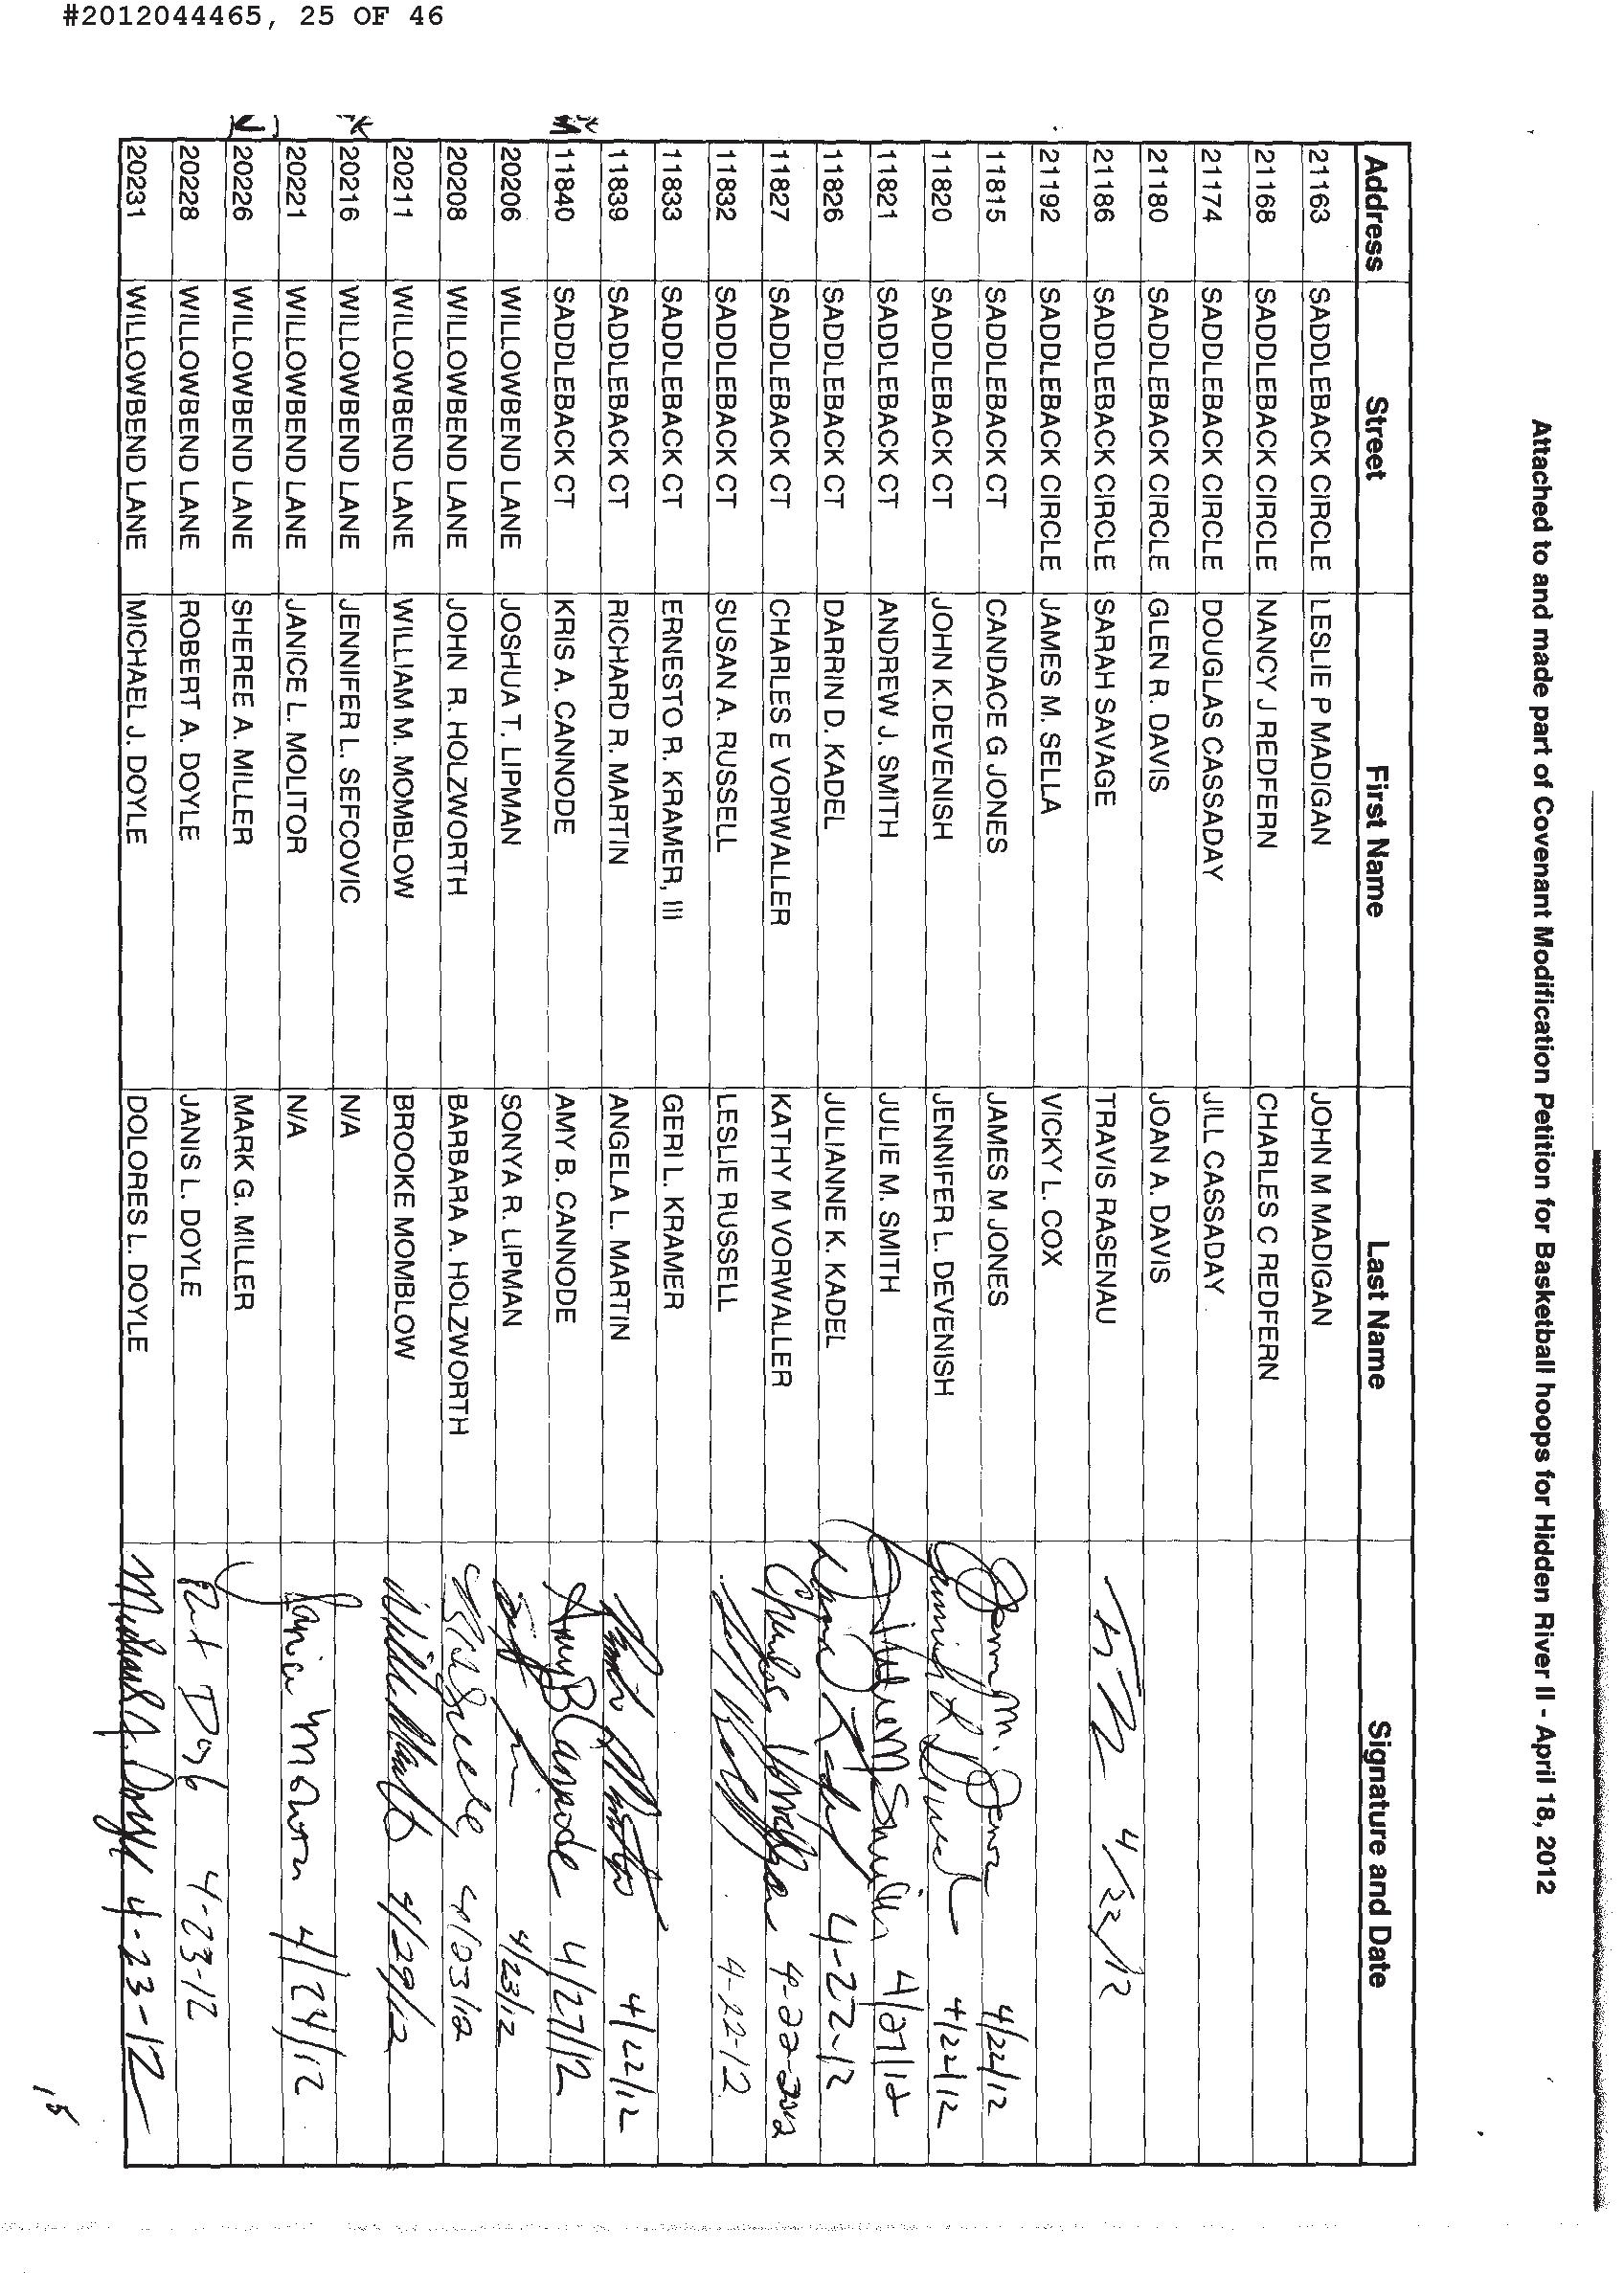 #2012044465, 25 OF 46
Attached to and made part of Covenant Modification Petition for Basketball hoops for Hidden River II - April 18, 2012
Address Street First Name Last Name Signature and Date
21163 SADDLEBACK CIRCLE LESLIE P MADIGAN JOHN M MADIGAN
21168 SADDLEBACK CIRCLE NANCY J REDFERN CHARLES C REDFERN
21174 SADDLEBACK CIRCLE DOUGLAS CASSADAY JILL CASSADAY
21180 SADDLEBACK CIRCLE GLEN R. DAVIS JOAN A. DAVIS
21186 SADDLEBACK CIRCLE SARAH SAVAGE TRAVIS RASENAU 4/22/12
21192 SADDLEBACK CIRCLE JAMES M. SELLA VICKY L. COX
11815 SADDLEBACK CT CANDACE G JONES JAMES M JONES James M. Jones 4/22/12
11820 SADDLEBACK CT JOHN K.DEVENISH JENNIFER L. DEVENISH 4/22/12
11821 SADDLEBACK CT ANDREW J. SMITH JULIE M. SMITH Julie M Smith 4/27/12
11826 SADDLEBACK CT DARRIN D. KADEL JULIANNE K. KADEL 4-22-12
11827 SADDLEBACK CT CHARLES E VORWALLER KATHY M VORWALLER Charles Vorwaller 4-22-2012
11832 SADDLEBACK CT SUSAN A. RUSSELL LESLIE RUSSELL 4-22-12
11833 SADDLEBACK CT ERNESTO R. KRAMER, III GERI L. KRAMER
11839 SADDLEBACK CT RICHARD R. MARTIN ANGELA L. MARTIN 4/22/12
11840 SADDLEBACK CT KRIS A. CANNODE AMY B. CANNODE Amy B Cannode 4/27/12
20206 WILLOWBEND LANE JOSHUA T. LIPMAN SONYA R. LIPMAN 4/23/12
20208 WILLOWBEND LANE JOHN R. HOLZWORTH BARBARA A. HOLZWORTH 4/23/12
20211 WILLOWBEND LANE WILLIAM M. MOMBLOW BROOKE MOMBLOW 4/29/12
20216 WILLOWBEND LANE JENNIFER L. SEFCOVIC N/A
20221 WILLOWBEND LANE JANICE L. MOLITOR N/A Janice Molitor 4/24/12
20226 WILLOWBEND LANE SHEREE A. MILLER MARK G. MILLER
20228 WILLOWBEND LANE ROBERT A. DOYLE JANIS L. DOYLE 4-23-12
20231 WILLOWBEND LANE MICHAEL J. DOYLE DOLORES L. DOYLE Michael J. Doyle 4-23-12